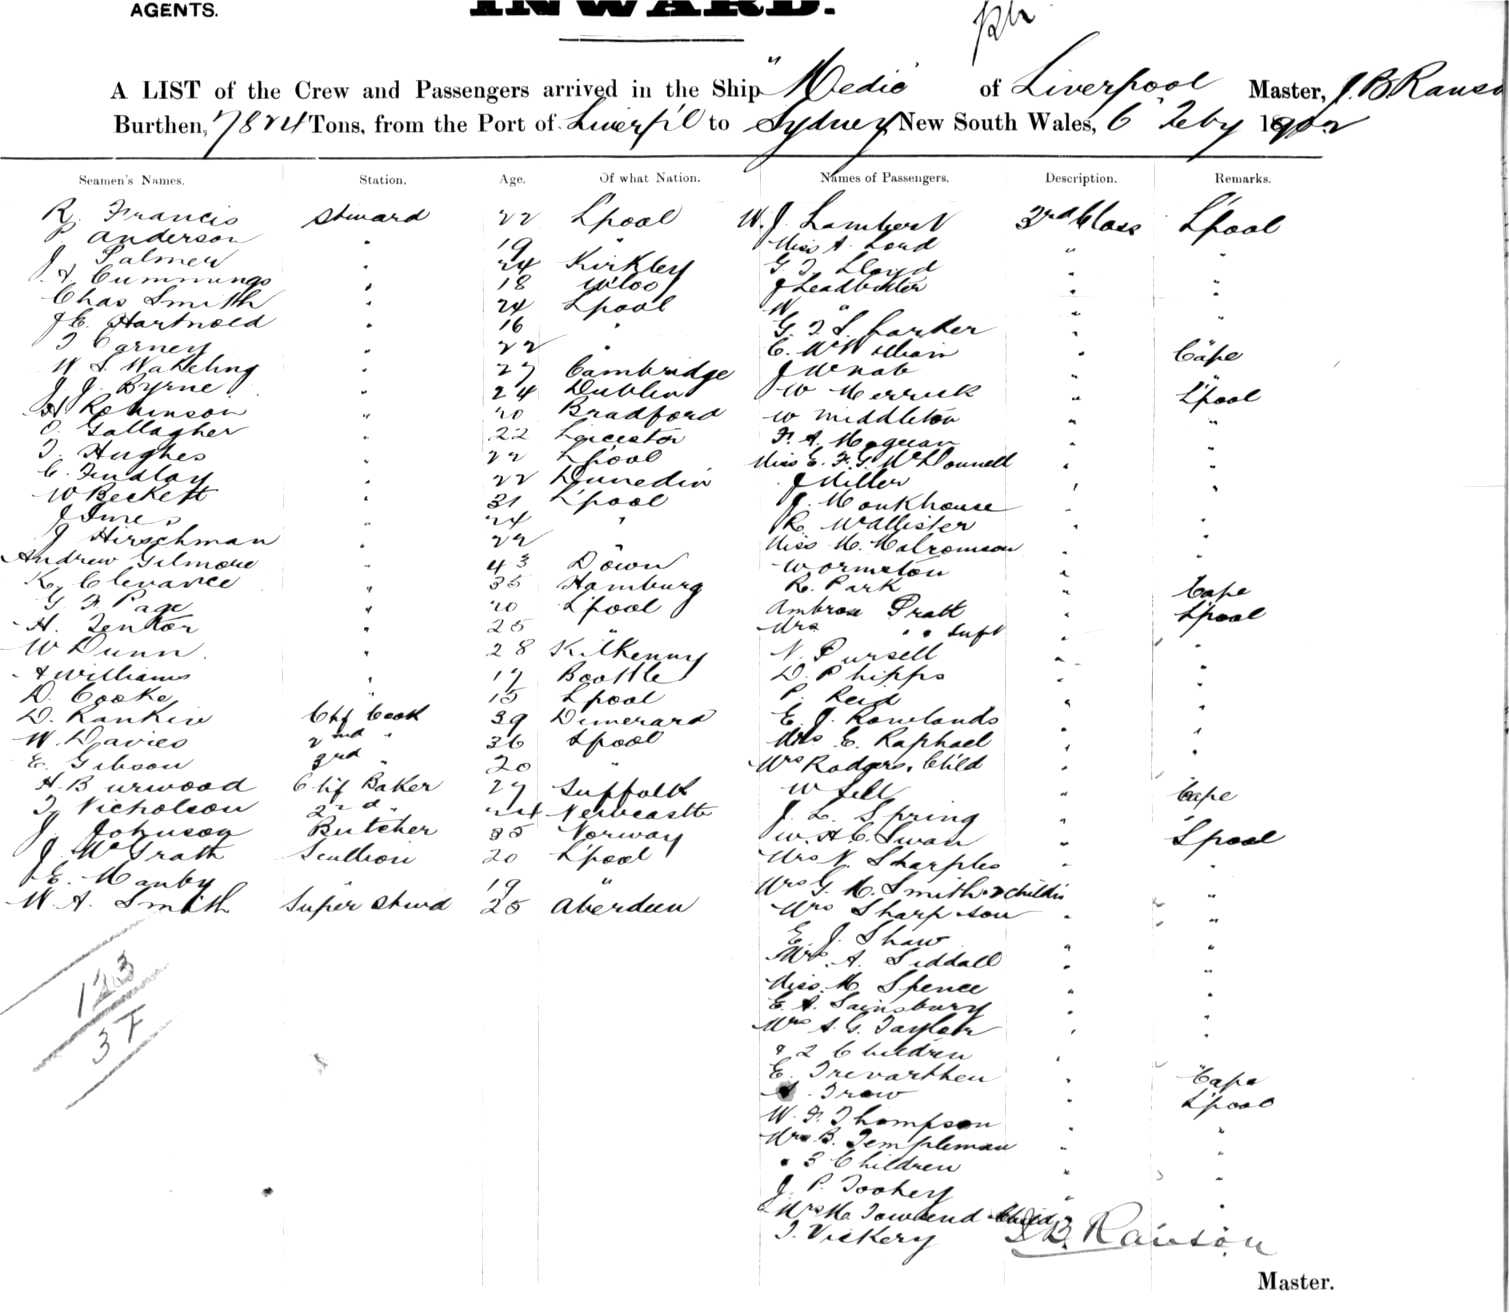 AGENTS. INWARD.
A LIST of the Crew and Passengers arrived in the Ship "Medic of Liverpool Master, J. B. Ranson
Burthen, 7824 Tons, from the Port of Liverp'l to Sydney New South Wales, 6 Feby 1902
Seamen's Names. Station. Age. Of what Nation. Names of Passengers. Description. Remarks.
R. Francis Steward 22 L'pool W. J. Lambert 3rd Class L'pool
P Anderson " 19 " Miss A. Loud " "
J. Palmer " 24 Kirkley G. T. Lloyd " "
A Cummings " 18 W'loo J Leadbetter " "
Chas Smith " 24 L'pool W " " "
J E. Hartnold " 16 " G. T. S. Parker " "
T Carney " 22 " C. McWilliam " Cape
W S. Wakeling " 27 Cambridge J McNab " "
J J. Byrne " 24 Dublin W Merrick " L'pool
H Robinson " 20 Bradford W Middleton " "
O. Gallagher " 22 Leicester F. A. "
T. Hughes " 22 L'pool Miss E. F. G. McDonnell " "
C. Findlay " 22 Dunedin J Miller " "
W Beckett " 31 L'pool J. Monkhouse "
J Imes " 24 " R. McAllister " "
J Hirschman " 22 " Miss M. "
Andrew Gilmore " 43 Down W Ormston " "
K. Clevance " 35 Hamburg R. Park " Cape
G F Page " 20 L'pool Ambrose Pratt " L'pool
H. Tenkor " 25 " Mrs " "
W Dunn " 28 Kilkenny N. Pursell " "
A Williams " 17 Bootle D. Phipps " "
D. Cooke " 15 L'pool P. Reid " "
D. Rankin Chf Cook 39 Dimerara E. J. Rowlands " "
W. Davies 2nd " 36 L'pool Mrs C. Raphael " "
E. Gibson 3rd " 20 " Mrs Rodgers, Child " "
H. Burwood Chf Baker 27 Suffolk W Sill " Cape
T. Nicholson 2nd " 24 Newcastle J. L. Spring "
J. Johnson Butcher 35 Norway W. H. C. Swan " L'pool
J. McGrath Scullion 20 L'pool Mrs N. Sharples " "
J E. Manby " 19 " Mrs G. M. Smith & 2 childn "
W. A. Smith Super Stwd 25 Aberdeen Mrs Sharp & son " "
E. J. Shaw " "
Mrs A. Siddall " "
Miss M. Spence " "
E. A. Sainsbury " "
Mrs A. G. Taylor " "
& 2 Children "
E. Trevarthen " Cape
A. Trow " L'pool
W. F. Thompson " "
Mrs B. Templeman " "
" 3 Children "
J. P. Toohey " "
Mrs M. Townsend & Child "
T. Vickery
123
37
J. B. Ranson
Master.